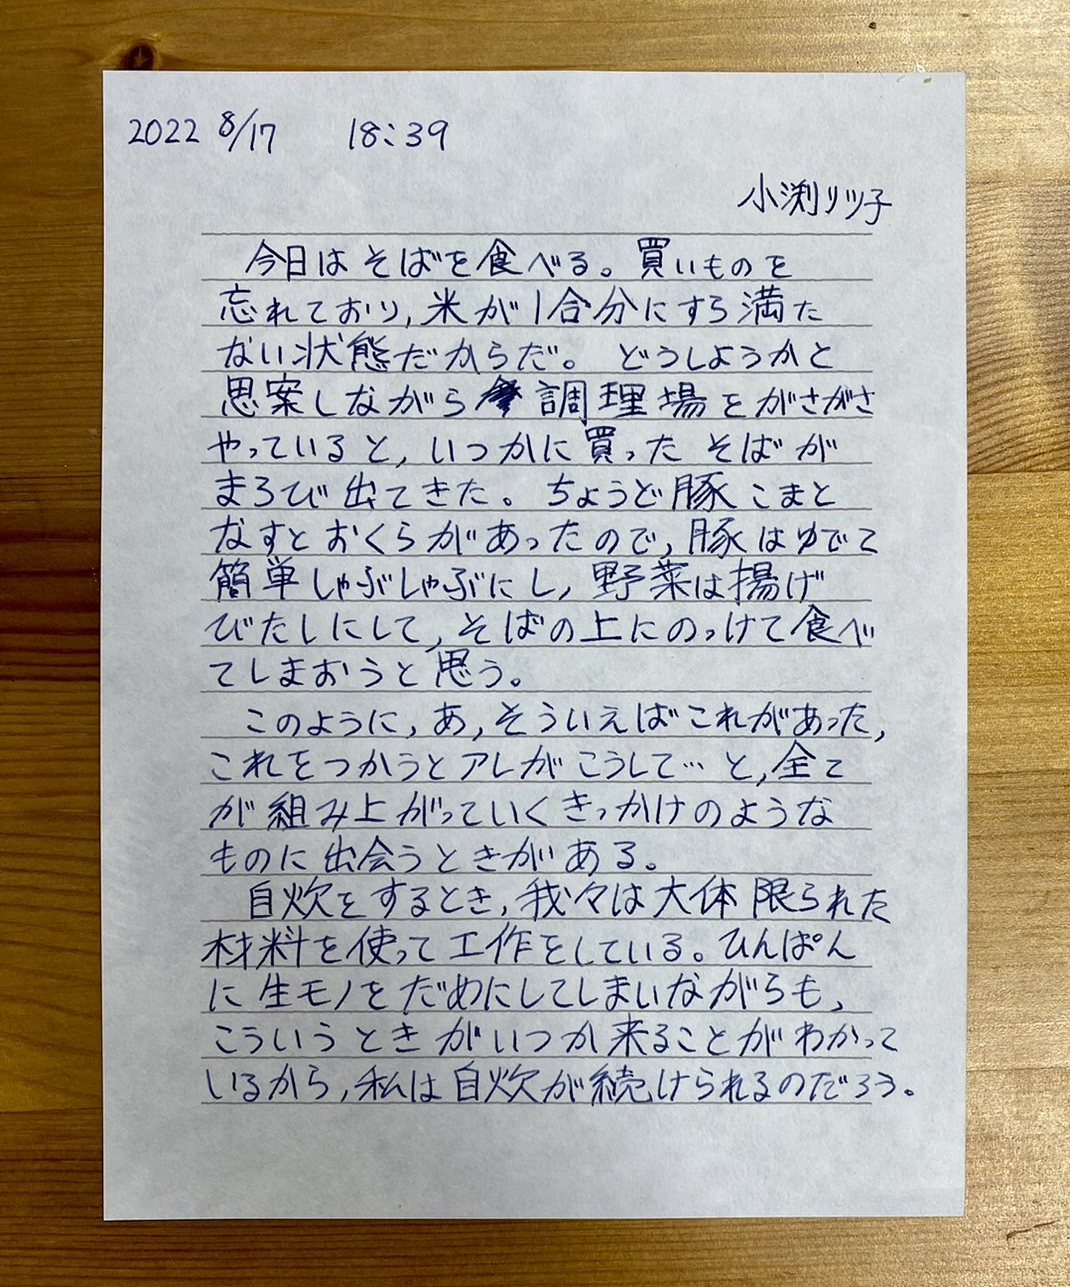 2022 8/17 18:39
小渕リツ子
今日はそばを食べる。買いものを
忘れており,米が1合分にすら満た
ない状態だからだ。どうしようかと
思案しながら調理場をがさがさ
やっていると,いつかに買ったそばが
まろび出てきた。ちょうど豚こまと
なすとおくらがあったので,豚はゆでて
簡単しゃぶしゃぶにし,野菜は揚げ
びたしにして,そばの上にのっけて食べ
てしまおうと思う。
このように,あ,そういえばこれがあった,
これをつかうとアレがこうして…と,全て
が組み上がっていくきっかけのような
ものに出会うときがある。
自炊をするとき,我々は大体限られた
材料を使って工作をしている。ひんぱん
に生モノをだめにしてしまいながらも,
こういうときがいつか来ることがわかって
いるから,私は自炊が続けられるのだろう。